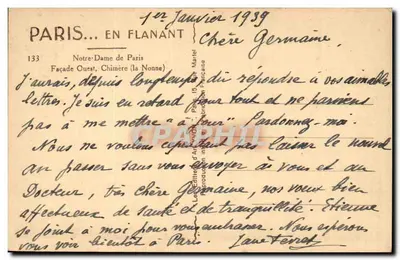 1er Janvier 1939
PARIS... EN FLANANT
Chère Germaine,
133 Notre-Dame de Paris
Façade Ouest, Chimère (la Nonne)
J'aurais, depuis longtemps, dû répondre à vos aimables
lettres. Je suis en retard pour tout et ne parviens
pas à me mettre "à jour". Pardonnez-moi.
Nous ne voulons cependant pas laisser le nouvel
an passer sans vous envoyer à vous et au
Docteur, très chère Germaine, nos vœux bien
affectueux de santé et de tranquillité. Etienne
se joint à moi pour vous embrasser. Nous espérons
vous voir bientôt à Paris. Jane
CPARAMA